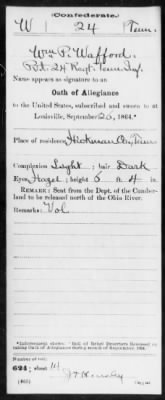 (Confederate.)
W 24 Tenn.
Wm P. Wafford
Pvt 24 Regt. Tenn Inf.
Name appears as signature to an
Oath of Allegiance
to the United States, subscribed and sworn to at
Louisville, September 25, 1864.*
Place of residence Hickman Co, Tenn
Complexion Light; hair Dark
Eyes Hazel; height 5 ft. 4 in.
REMARK: Sent from the Dept. of the Cumber-
land to be released north of the Ohio River.
Remarks: Vol
taking Oath of Allegiance during month of September, 1864.
Number of roll:
624; sheet 14